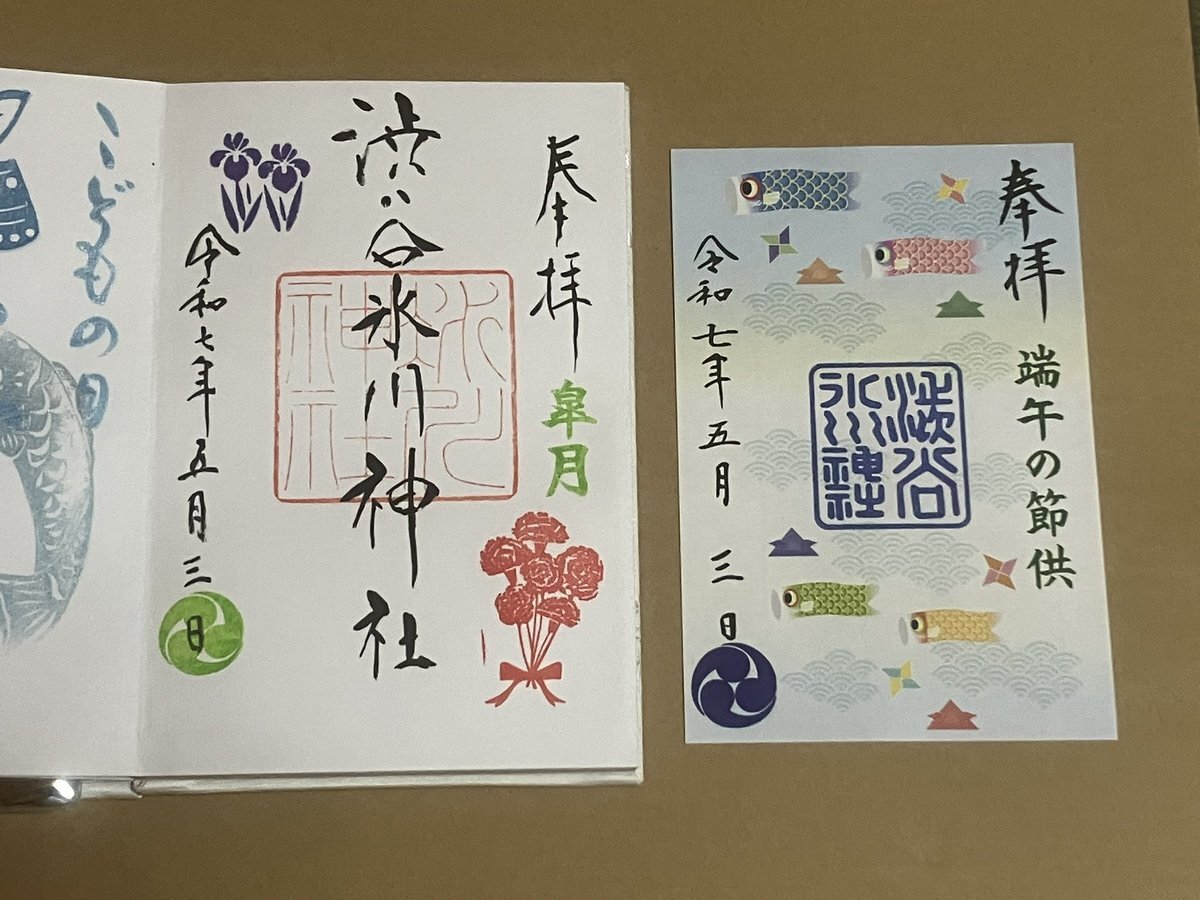 こどもの日
奉拝
皐月
渋谷氷川神社
氷川
神社
令和七年五月三日
奉拝
端午の節供
澁谷
氷川
神社
令和七年五月三日